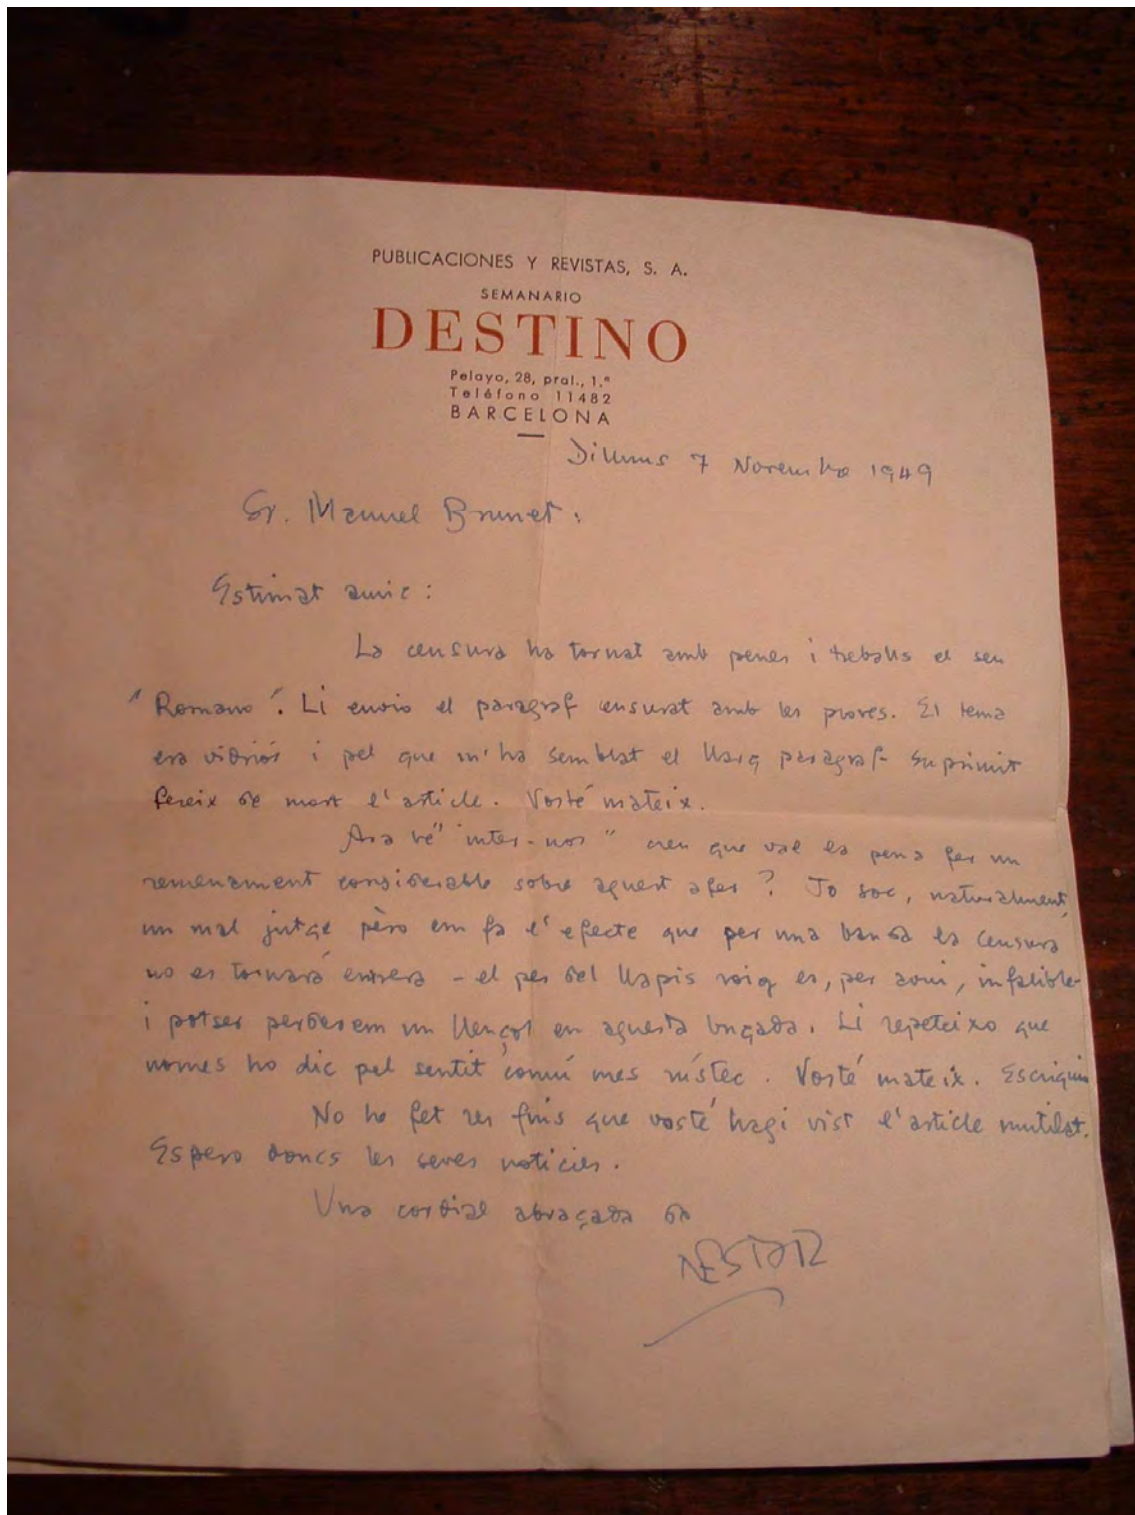 PUBLICACIONES Y REVISTAS, S. A.
SEMANARIO
DESTINO
Pelayo, 28, pral., 1.ª
Teléfono 11482
BARCELONA
Dilluns 7 Novembre 1949
Sr. Manuel Brunet:
Estimat amic:
La censura ha tornat amb penes i treballs el seu
"Romano". Li envio el paragraf censurat amb les proves. El tema
era vidriós i pel que m'ha semblat el llarg paragraf suprimit
fereix de mort l'article. Vosté mateix.
Ara bé "inter-nos" creu que val la pena fer un
remenament considerable sobre aquest afer? Jo soc, naturalment,
un mal jutge pèro em fa l'efecte que per una banda la censura
no es tornará enrera - el pes del llapis roig es, per aqui, infalible-
i potser perderem un llençol en aquesta bugada. Li repeteixo que
nomes ho dic pel sentit comú mes rústec. Vosté mateix. Escriguim
No he fet res fins que vosté hagi vist l'article mutilat.
Espero doncs les seves noticies.
Una cordial abraçada de
NESTOR